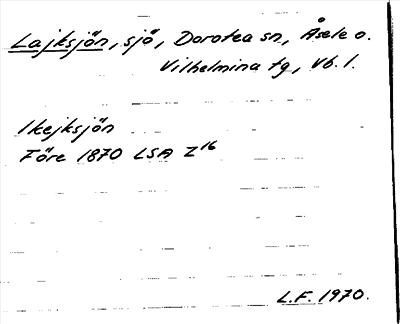 Lajksjön, sjö, Dorotea sn, Åsele o.
Vilhelmina tg, Vb. l.
Ikejksjön
Före 1870 LSA Z16
L.F. 1970.